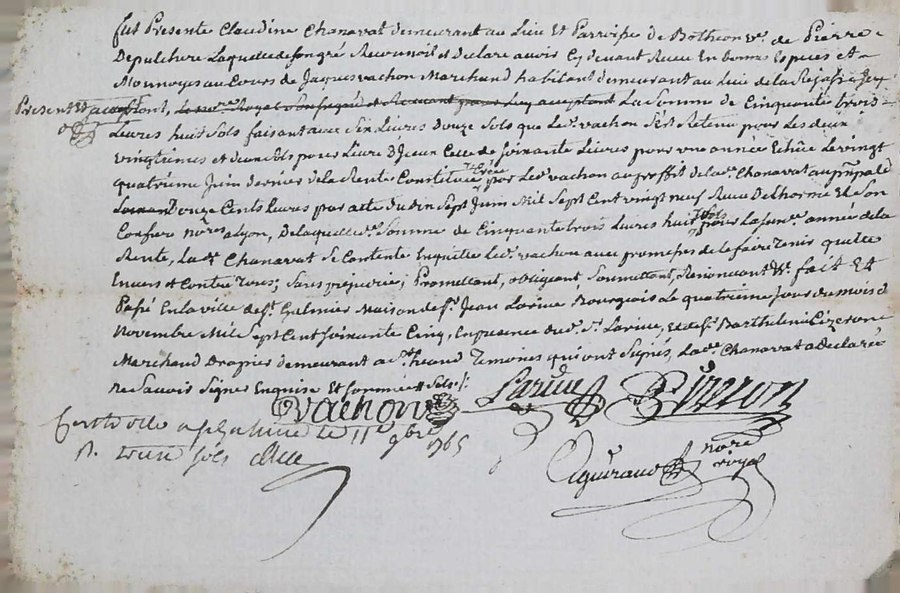 fut Presente Claudine Chanavat demeurant au Lieu Et Parroisse de Botheon Ve. de Pierre
Depulcheu Laquelle de son gré Reconnoit et declare avoir Cy devant Receu En bonnes Espèces et
Monnoyes au Cours de Jaques Vachon Marchand habitant demeurant au Lieu de la
Present Et acceptant, La Somme de Cinquante trois
Livres huit Sols faisant avec Six Livres Douze Sols que Led. Vachon S'est Retenu pour Les deux
vingtiemes et deux sols pour Livre D'Iceux Celle de soixante Livres pour une année Echue Le vingt
quatrieme Juin dernier de la Rente Constituée Crée par Led. Vachon au proffit de lad. Chanavat au ppal de
Douze Cents Livres par acte du dix Sept Juin Mil Sept Cent vingt neuf Receu Delhorme Et Son
Confrere nores. a Lyon, De laquelle ditte Somme de Cinquante trois Livres huit Sols pour La année de la
Rente, La de. Chanavat Se Contente En quitte Led. Vachon avec promesse de le faire Tenir quitte
Envers et Contre Tous; Sans prejudice; Promettant, obligeant, Soumettant, Renonceant &a. fait Et
Passé En la ville de St. Galmier Maison de Sr. Jean Larive Bourgeois Le quatrieme Jour du Mois de
Novembre Mil Sept Cent Soixante Cinq, En presence dud. Sr. Larive, Et de Sr. Barthelemi Cizeron
Marchand Drapier demeurant a St. Temoins qui ont Signés, La de. Chanavat a Declaré
ne Savoir Signer Enquise Et Sommée
Vachon Larive Cizeron
Controllé a St. Galmier Le 11 9bre 1765
R. treize sols
Aguiraud nore royal